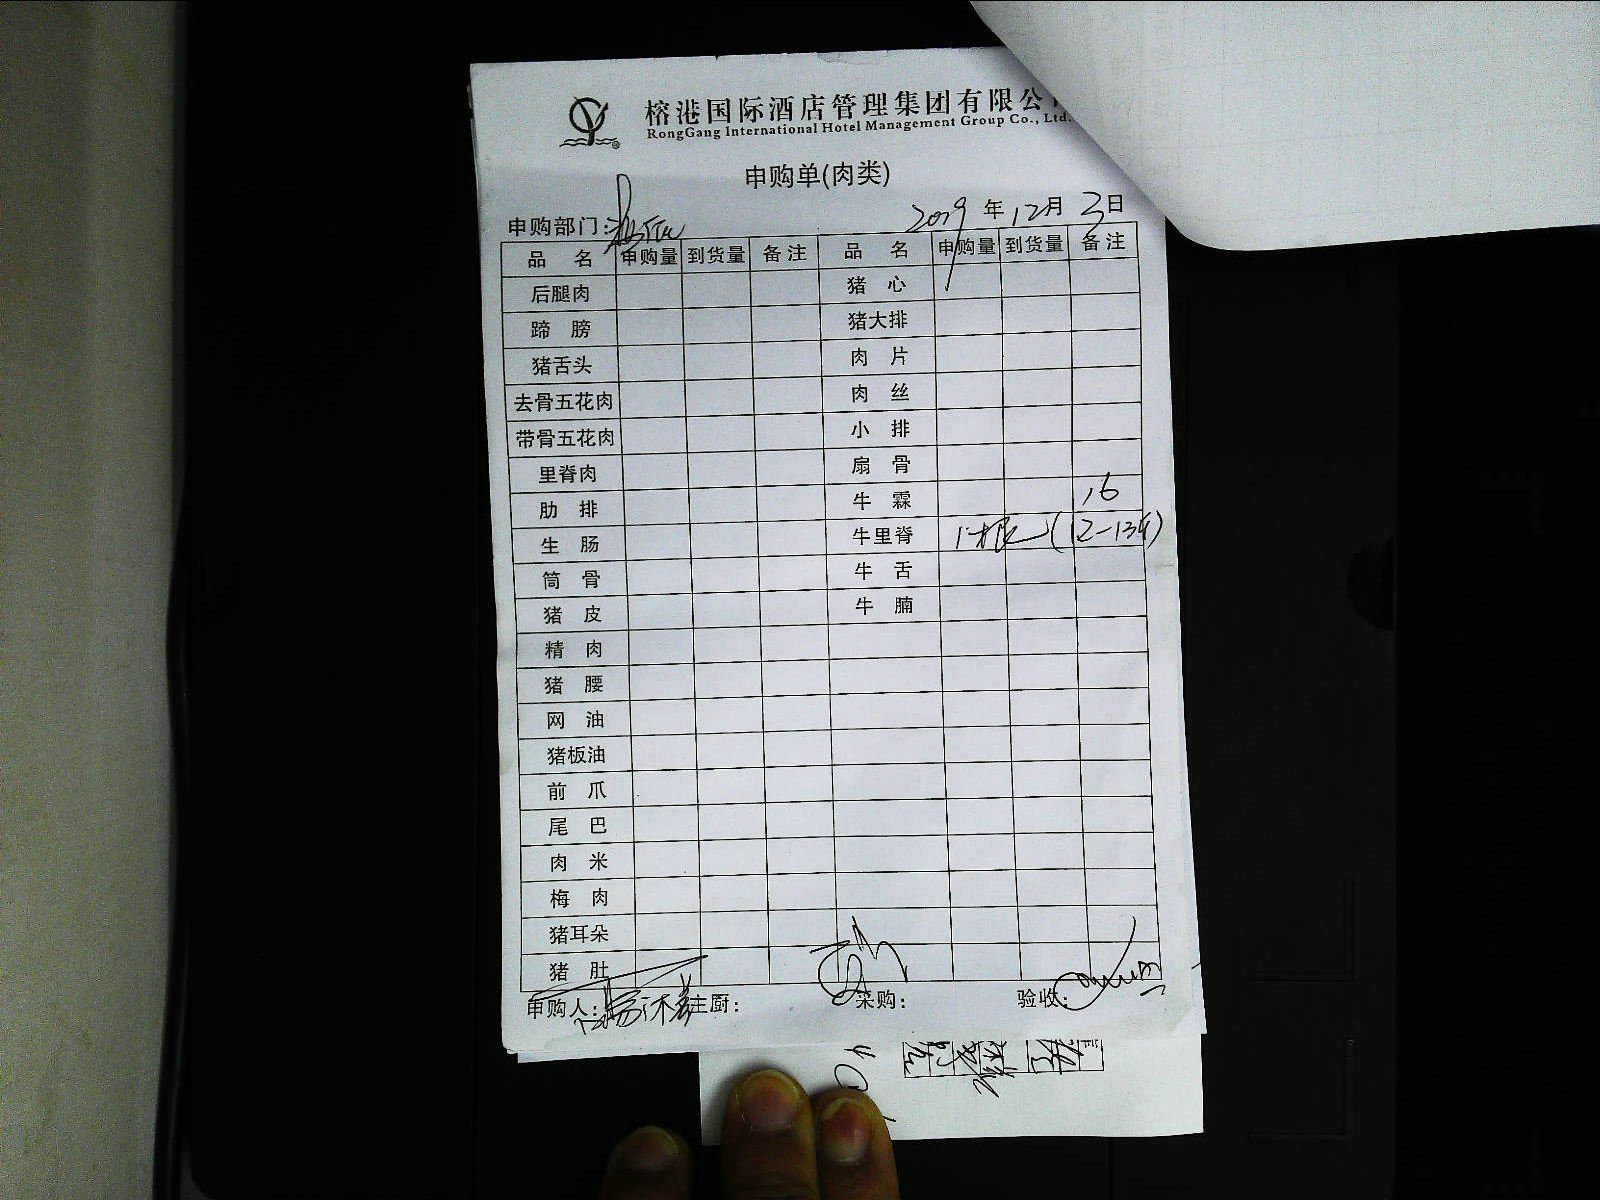 榕港国际酒店管理集团有限公
RongGang International Hotel Management Group Co., Ltd.
申购单(肉类)
申购部门:
2019 年 12 月 3 日
品 名 申购量 到货量 备注 品 名 申购量 到货量 备注
后腿肉 猪 心
蹄 膀 猪大排
猪舌头 肉 片
去骨五花肉 肉 丝
带骨五花肉 小 排
里脊肉 扇 骨
肋 排 牛 霖 16
生 肠 牛里脊 1根 (12-13斤)
筒 骨 牛 舌
猪 皮 牛 腩
精 肉
猪 腰
网 油
猪板油
前 爪
尾 巴
肉 米
梅 肉
猪耳朵
猪 肚
申购人: 主厨: 采购: 验收: